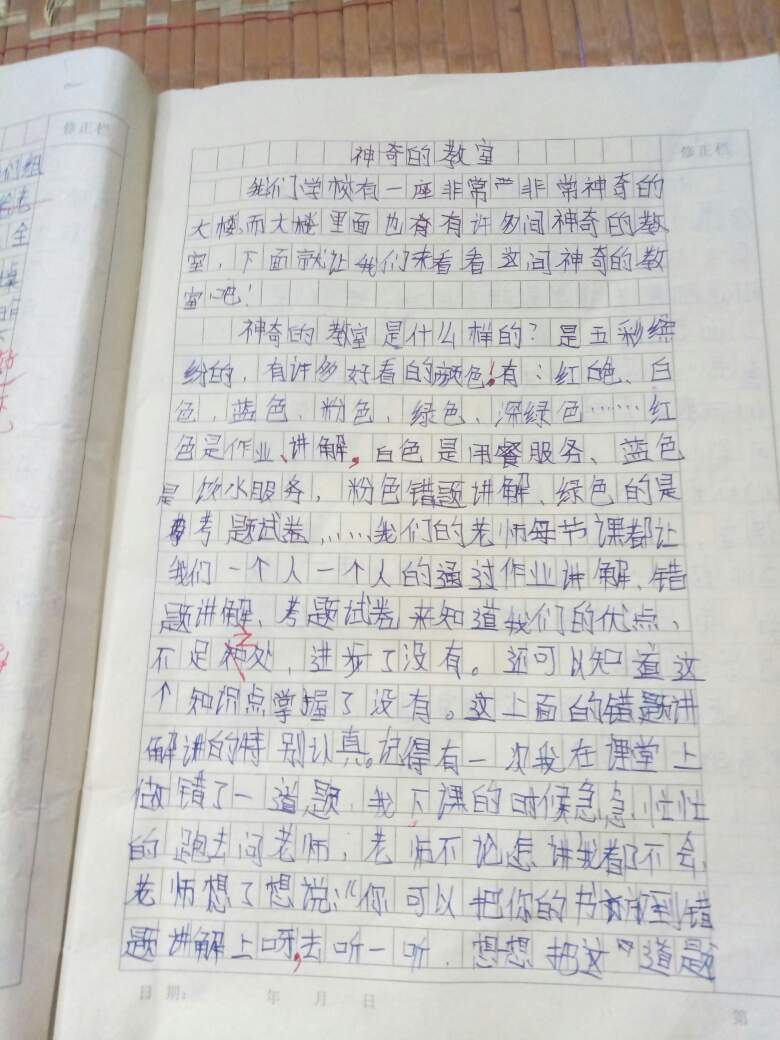 们组
老
全
修正栏
修正栏
神奇的教室
我们学校有一座非常非常神奇的
大楼,而大楼里面也有有许多间神奇的教
室,下面就让我们来看看这间神奇的教
室吧!
神奇的教室是什么样的?是五彩缤
纷的,有许多好看的颜色!有:红色、白
色、蓝色、粉色、绿色、深绿色……红
色是作业讲解,白色是用餐服务、蓝色
是饮水服务,粉色错题讲解、绿色的是
考题试卷……我们的老师每节课都让
我们一个人一个人的通过作业讲解、错
题讲解、考题试卷来知道我们的优点、
不足之处,进步了没有。还可以知道这
个知识点掌握了没有。这上面的错题讲
解讲的特别认真。记得有一次我在课堂上
做错了一道题,我下课的时候急急忙忙
的跑去问老师,老师不论怎讲我都不会,
老师想了想说:“你可以把你的书放到错
题讲解上呀,去听一听,想想把这道题
日期: 年 月 日
第